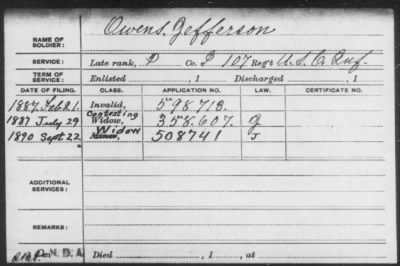 Owens, Jefferson
NAME OF SOLDIER:
SERVICE: Late rank, P Co. I 107 Reg't U.S.C. Inf.
TERM OF SERVICE: Enlisted , 1 Discharged , 1
DATE OF FILING. CLASS. APPLICATION NO. LAW. CERTIFICATE NO.
1887 Feb 21. Invalid, 598713.
Contesting
1887 July 29 Widow, 358.607. G
Widow
1890 Sept 22 Minor, 508741 J
ADDITIONAL SERVICES:
REMARKS:
N.D.A. Died , 1 , at